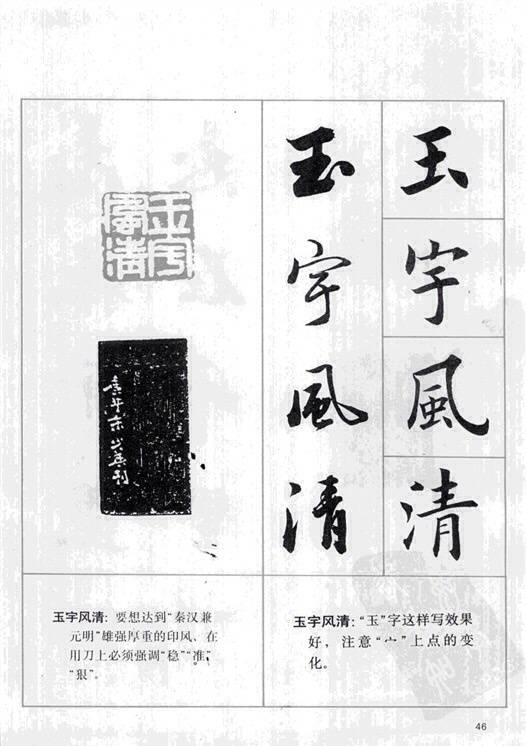 玉宇風清
玉宇風清
玉宇
風清
玉宇风清：要想达到“秦汉兼
元明”雄强厚重的印风，在
用刀上必须强调“稳”“准”，
“狠”。
玉宇风清：“玉”字这样写效果
好，注意“宀”上点的变
化。
46